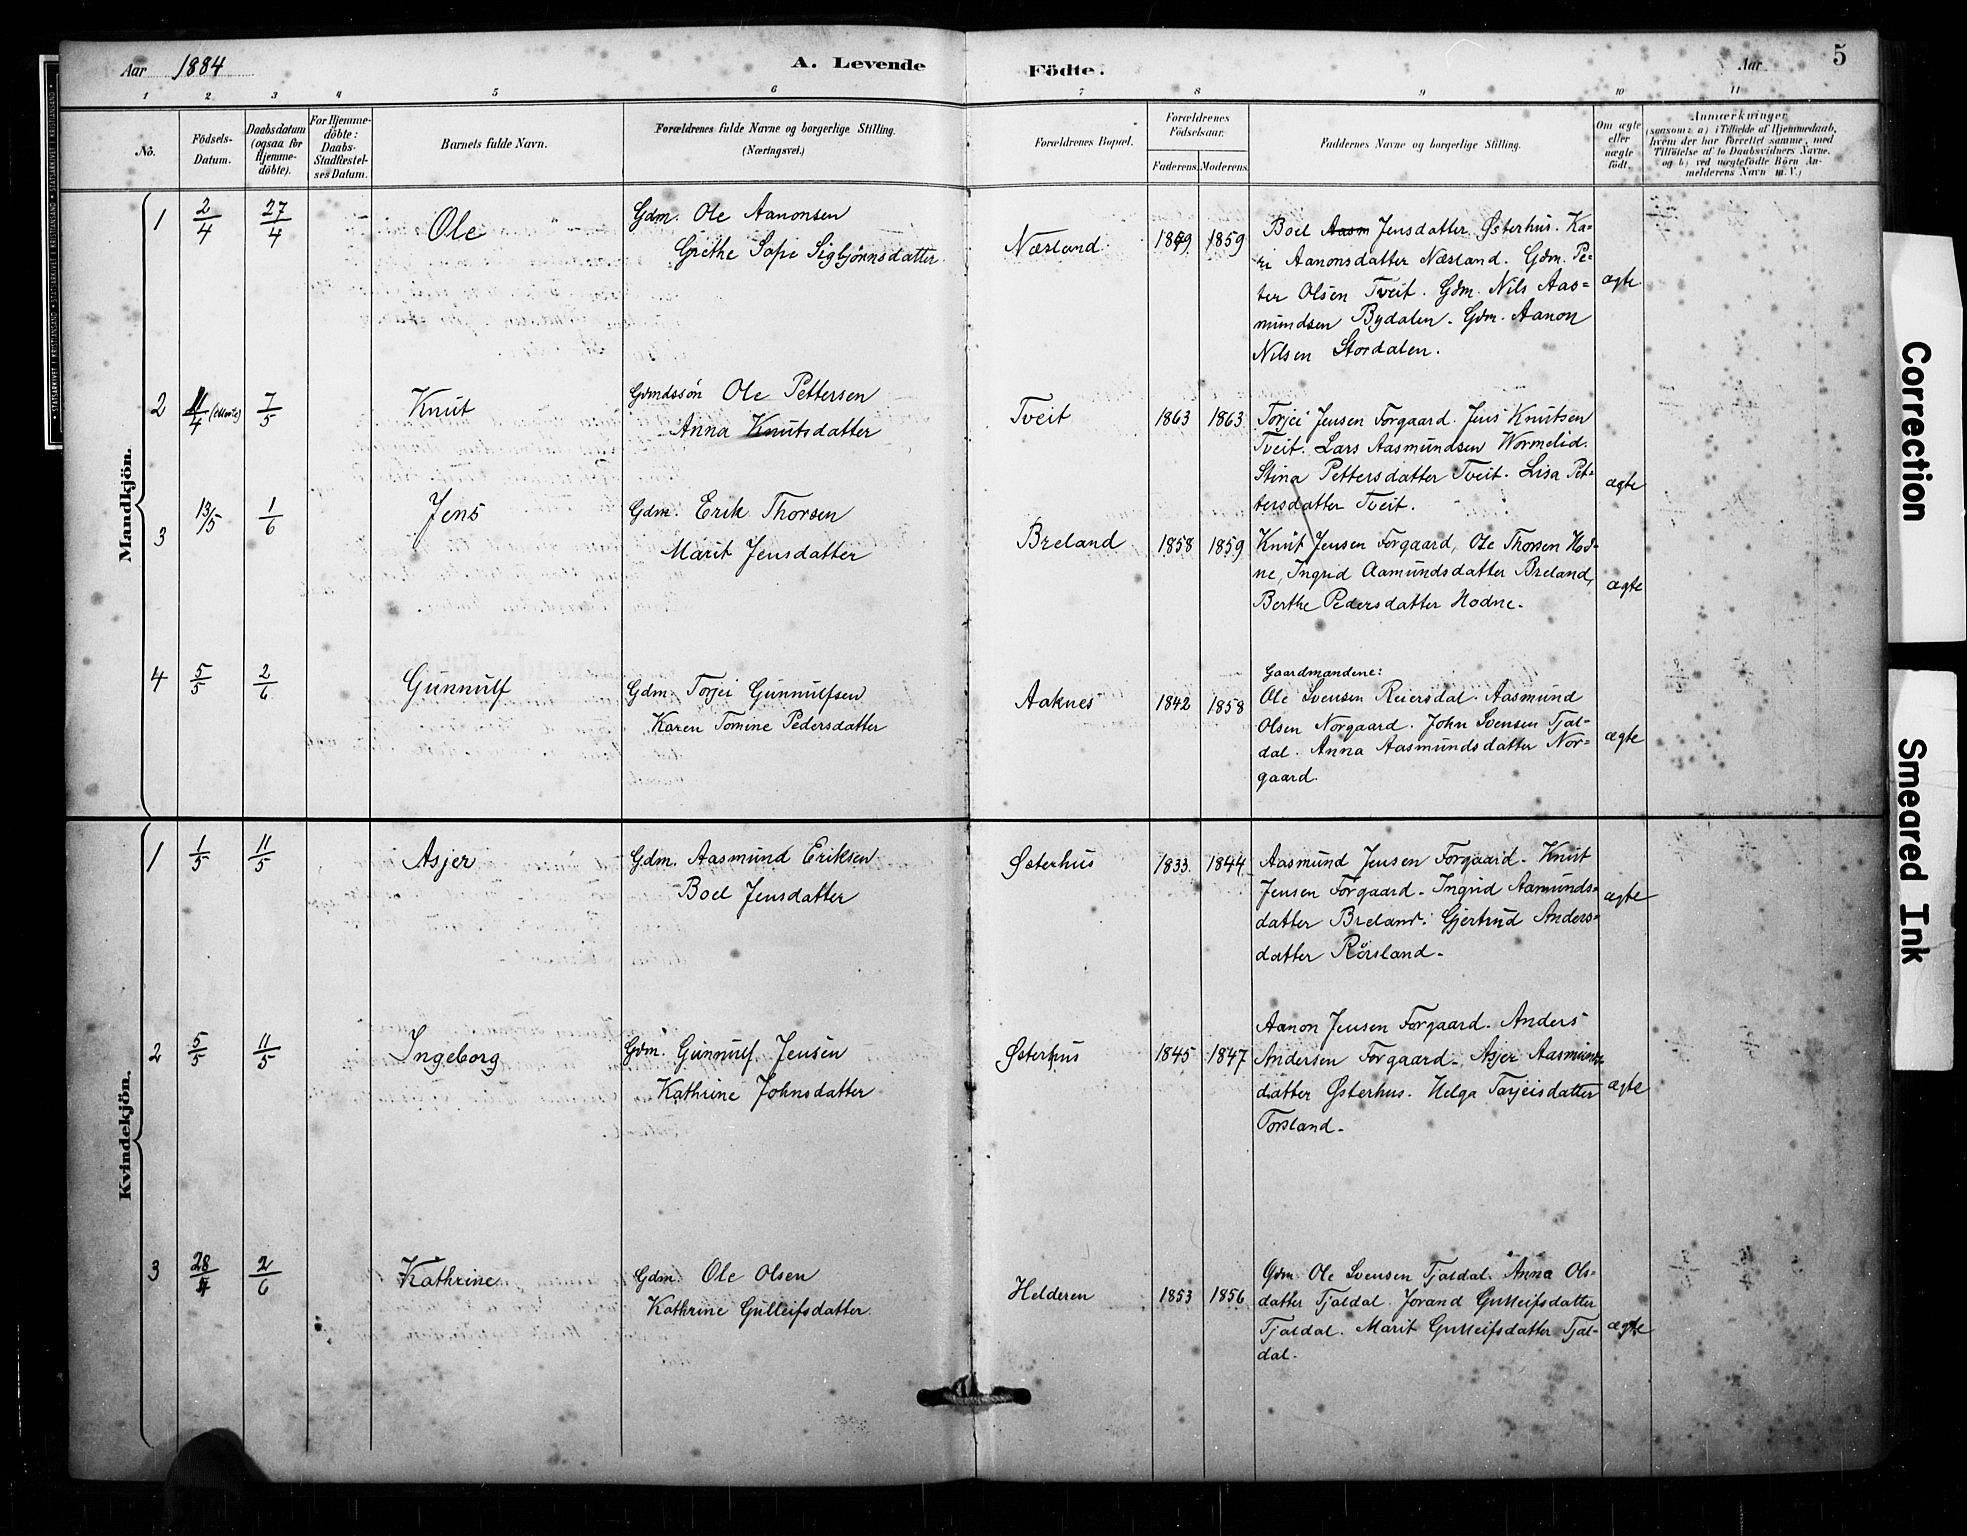 Aar 1884 A. Levende Födte. Aar 5
1 2 3 4 5 6 7 8 9 10 11
No. Födsels-Datum. Daabsdatum (ogsaa for Hjemme-döbte). For Hjemme-döbte: Daabs-Stadfæstel-ses Datum. Barnets fulde Navn. Forældrenes fulde Navne og borgerlige Stilling. (Næringsvei.) Forældrenes Bopæl. Forældrenes Födselsaar. Faderens. Moderens. Faddernes Navne og borgerlige Stilling. Om ægte eller uægte födt. Anmærkninger (saasom: a) i Tilfælde af Hjemmedaab, hvem der har forrettet samme, med Tilföielse af to Daabsvidners Navne, og b) ved uægtefödte Börn An-melderens Navn m. V.)
Mandkjön.
1 2/4 27/4 Ole Gdm. Ole Aanonsen
Grethe Sofie Sigbjønnsdatter
Næsland 1859 1859
Boel Aasm Jensdatter Østerhus. Ka-
ri Aanonsdatter Næsland. Gdm. Pe=
ter Olsen Tveit. Gdm. Nils Aas=
mundsen Bydalen. Gdm. Aanon
Nilsen Stordalen.
ægte
2 11/4 7/5 Knut Gdmdssøn Ole Pettersen
Anna Knutsdatter
Tveit 1863 1863
Torjei Jensen Forgaard. Jens Knutsen
Tveit. Lars Aasmundsen Wormelid.
Stina Pettersdatter Tveit. Lisa Pet-
tersdatter Tveit.
ægte
3 13/5 1/6 Jens Gdm. Erik Thorsen
Marit Jensdatter
Breland 1858 1859
Knut Jensen Forgaard, Ole Thorsen Hod-
ne, Ingrid Aamundsdatter Breland,
Berthe Pedersdatter Hodne.
ægte
4 5/5 2/6 Gunnulf Gdm. Torjei Gunnulfsen
Karen Tomine Pedersdatter
Aaknes 1842 1858
Gaardmandene:
Ole Svensen Reiersdal. Aasmund
Olsen Norgaard. John Svensen Tjal-
dal. Anna Aasmundsdatter Nor=
gaard.
ægte
Kvindekjön.
1 1/5 11/5 Asjer Gdm. Aasmund Eriksen
Boel Jensdatter
Østerhus 1833 1844
Aasmund Jensen Forgaard. Knut
Jensen Forgaard. Ingrid Aamunds=
datter Breland. Gjertrud Anders=
datter Rörsland.
ægte
2 5/5 11/5 Ingeborg Gdm. Gunnulf Jensen
Kathrine Johnsdatter
Østerhus 1845 1847
Aanon Jensen Forgaard. Anders
Andersen Forgaard. Asjer Aasmunds
datter Østerhus. Helga Tarjeisdatter
Forsland.
ægte
3 28/4 2/6 Kathrine Gdm. Ole Olsen
Kathrine Gulleifsdatter.
Helderen 1853 1856
Gdm Ole Svensen Tjaldal. Anna Ols=
datter Tjaldal. Jorand Gulleifsdatter
Tjaldal. Marit Gulleifsdatter Tjal-
dal.
ægte
Correction
Smeared Ink
STATSARKIVET I KRISTIANSAND